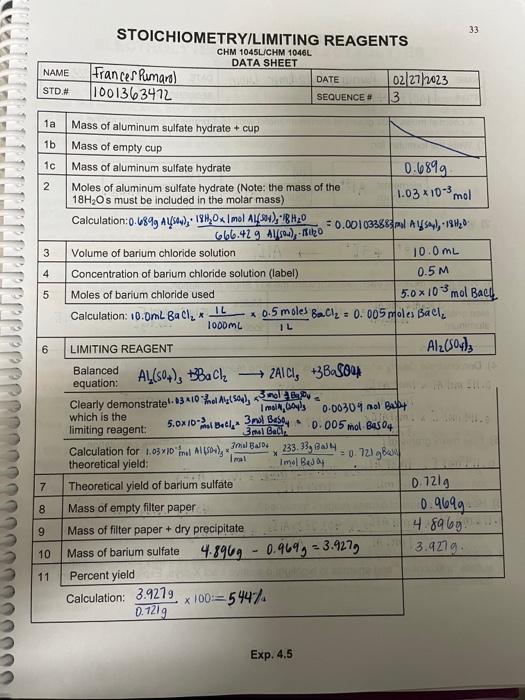 33
STOICHIOMETRY/LIMITING REAGENTS
CHM 1045L/CHM 1046L
DATA SHEET
NAME Frances Pumarol DATE 02/27/2023
STD.# 1001363472 SEQUENCE # 3
1a Mass of aluminum sulfate hydrate + cup
1b Mass of empty cup
1c Mass of aluminum sulfate hydrate 0.689g
2 Moles of aluminum sulfate hydrate (Note: the mass of the
18H₂Os must be included in the molar mass) 1.03 x 10⁻³ mol
Calculation: 0.689g Al₂(SO₄)₃ · 18H₂O x 1mol Al₂(SO₄)₃ · 18H₂O = 0.001033883mol Al₂(SO₄)₃ · 18H₂O
666.42 g Al₂(SO₄)₃ · 18H₂O
3 Volume of barium chloride solution 10.0mL
4 Concentration of barium chloride solution (label) 0.5 M
5 Moles of barium chloride used 5.0 x 10⁻³ mol BaCl₂
Calculation: 10.0mL BaCl₂ x 1L x 0.5 moles BaCl₂ = 0.005 moles BaCl₂
1000mL 1L
6 LIMITING REAGENT Al₂(SO₄)₃
Balanced
equation: Al₂(SO₄)₃ + 3BaCl₂ → 2AlCl₃ + 3BaSO₄
Clearly demonstrate 1.03 x 10⁻³ mol Al₂(SO₄)₃ x 3mol BaSO₄ =
which is the 1mol Al₂(SO₄)₃ 0.00309 mol BaSO₄
limiting reagent: 5.0x10⁻³ mol BaCl₂ x 3mol BaSO₄ = 0.005 mol BaSO₄
3mol BaCl₂
Calculation for 1.03x10⁻³ mol Al(SO₄)₃ x 3mol BaSO₄ x 233.39g BaSO₄ = 0.721g BaSO₄
theoretical yield: 1mol 1mol BaSO₄
7 Theoretical yield of barium sulfate 0.721g
8 Mass of empty filter paper 0.969g
9 Mass of filter paper + dry precipitate 4.896g
10 Mass of barium sulfate 4.896g - 0.969g = 3.927g 3.927g.
11 Percent yield
Calculation: 3.927g x 100 = 544%
0.721g
Exp. 4.5